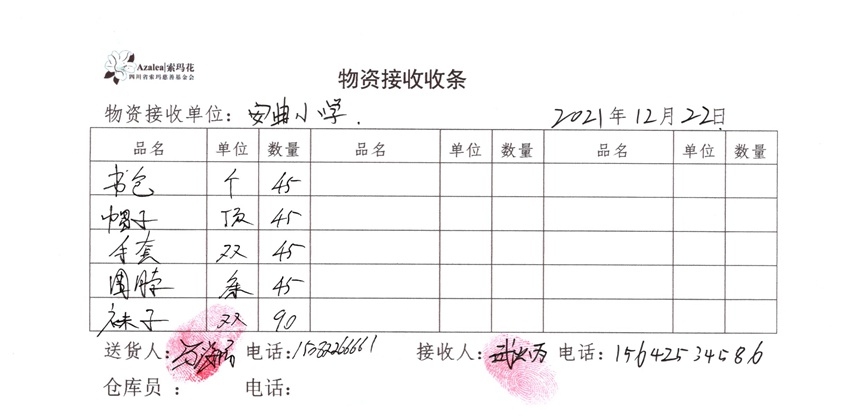 Azalea|索玛花
四川省索玛慈善基金会
物资接收收条
物资接收单位：安曲小学. 2021年12月22日
品名 单位 数量 品名 单位 数量 品名 单位 数量
书包 个 45
帽子 顶 45
手套 双 45
围脖 条 45
袜子 双 90
送货人： 电话： 接收人： 电话：15642534586
仓库员： 电话：